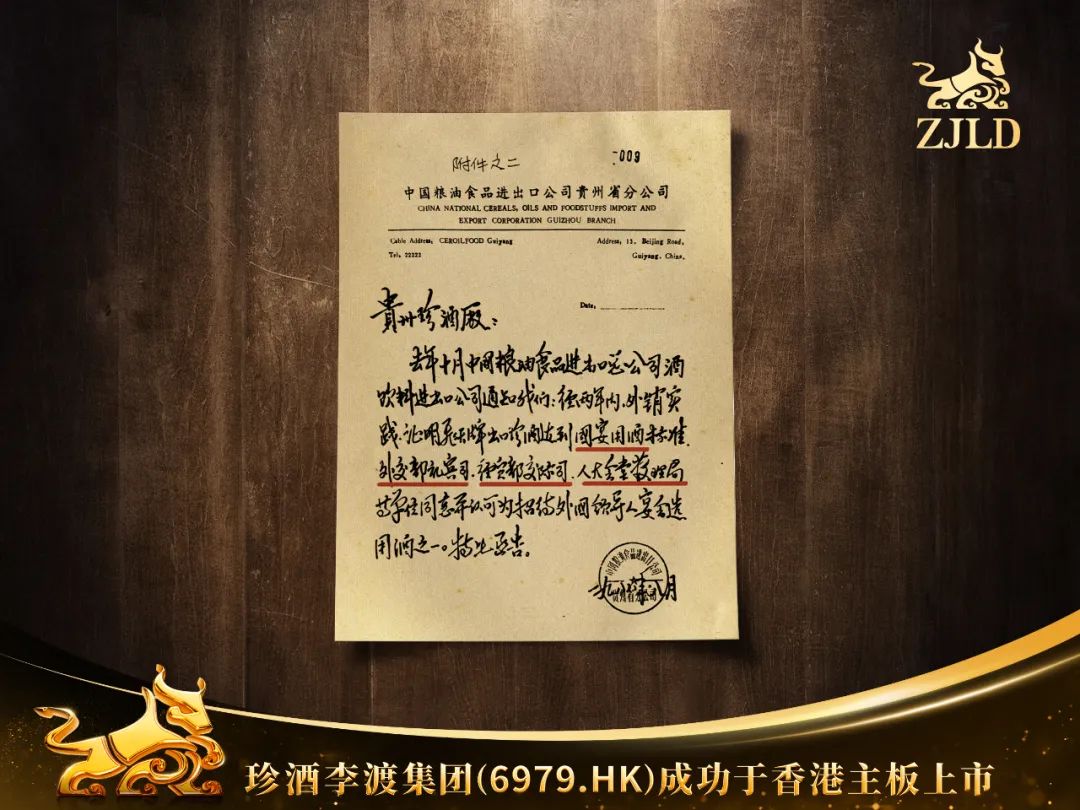 ZJLD
附件之二
-009
中国粮油食品进出口公司贵州省分公司
CHINA NATIONAL CEREALS, OILS AND FOODSTUFFS IMPORT AND
EXPORT CORPORATION GUIZHOU BRANCH
Cable Address: CEROILFOOD Guiyang
Address: 13, Beijing Road,
Tel: 22222
Guiyang, China.
Date:
貴州珍酒厰:
去年十月中国粮油食品进出口总公司酒
饮料进出口公司通知我们:经两年内、外销实
践、证明 牌出口珍酒达到国宴用酒标准.
外交部礼宾司、经贸部交际司、人大会堂管理局
等单位同意并认可为招待外国领导人宴会选
用酒之一。特此函告。
八月
珍酒李渡集团(6979.HK)成功于香港主板上市